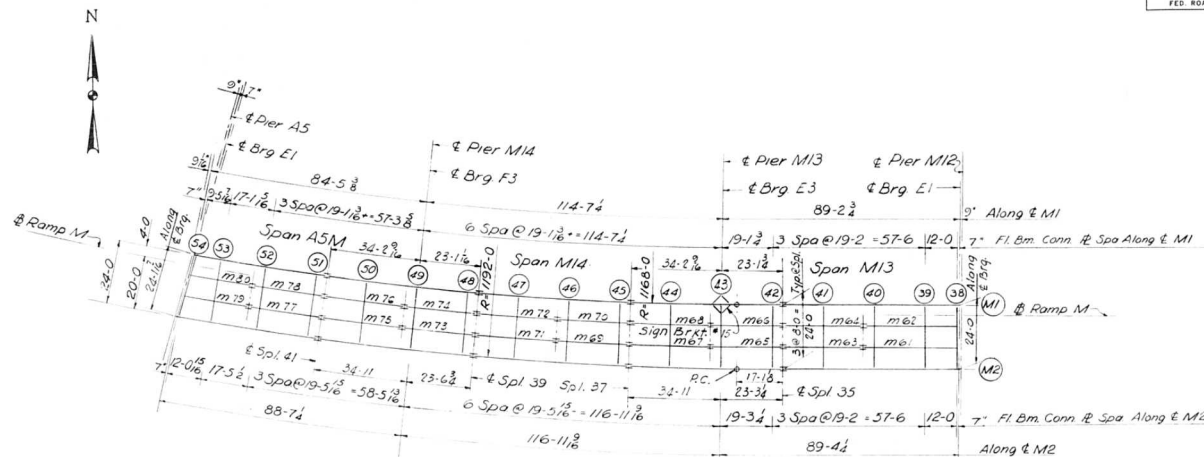 FED. ROA
N
9" 7"
℄ Pier A5
℄ Brg E1
℄ Pier M14
℄ Brg F3
℄ Pier M13
℄ Pier M12
℄ Brg E3
℄ Brg E1
84-5 3/8
114-7 1/4
89-2 3/4
9" Along ℄ M1
7"
17-1 5/16
3 Spa@19-1 3/16+=57-3 5/8
6 Spa @ 19-1 3/16+=114-7 1/4
19-1 3/4
3 Spa@19-2=57-6
12-0
7" Fl. Bm. Conn. ℞ Spa Along ℄ M1
Ramp M
4-0
Along ℄ Brg.
Span A5M
34-2 9/16
23-1 1/16
R=1192-0
Span M14
R=1168-0
34-2 9/16
23-1 3/4
Type Spl.
Span M13
Along ℄ Brg.
54
53
52
51
50
49
48
47
46
45
44
43
42
41
40
39
38
M1
Ramp M
24-0
20-0
m80
m78
m76
m74
m72
m70
m68
m66
m64
m62
m79
m77
m75
m73
m71
m69
Sign Brkt. #15
m67
m65
m63
m61
1
3 @ 8-0 = 24-0
24-0
M2
℄ Spl. 41
34-11
23-6 3/4
℄ Spl. 39
Spl. 37
34-11
P.C.
17-1 1/8
23-3 1/4
℄ Spl. 35
7"
12-0 15/16
17-5 1/2
3 Spa@19-5 15/16=58-5 13/16
6 Spa @ 19-5 15/16-=116-11 9/16
19-3 1/4
3 Spa@19-2=57-6
12-0
7" Fl. Bm. Conn. ℞ Spa Along ℄ M2
88-7 1/4
116-11 9/16
89-4 1/4
Along ℄ M2